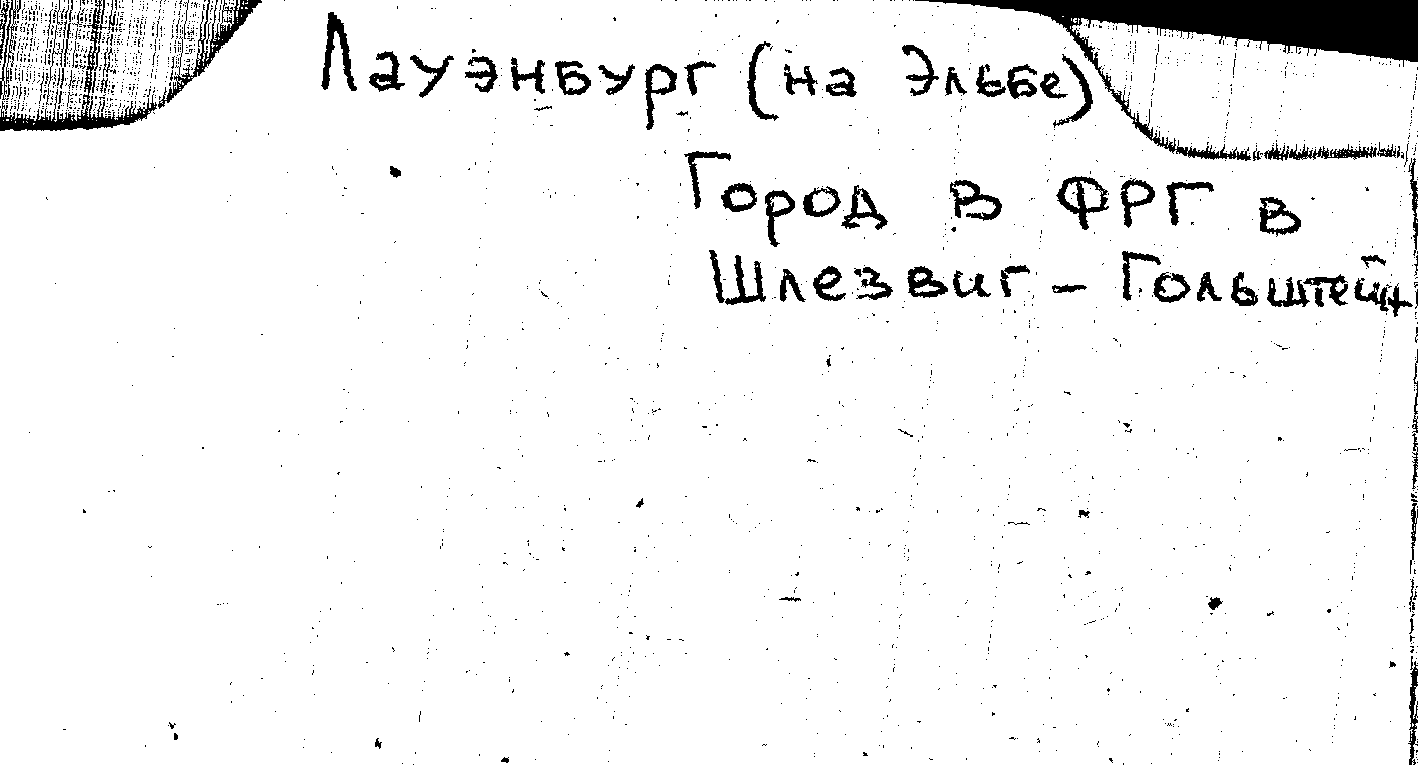 Лауэнбург (на Эльбе)
Город в ФРГ в
Шлезвиг - Гольштейн